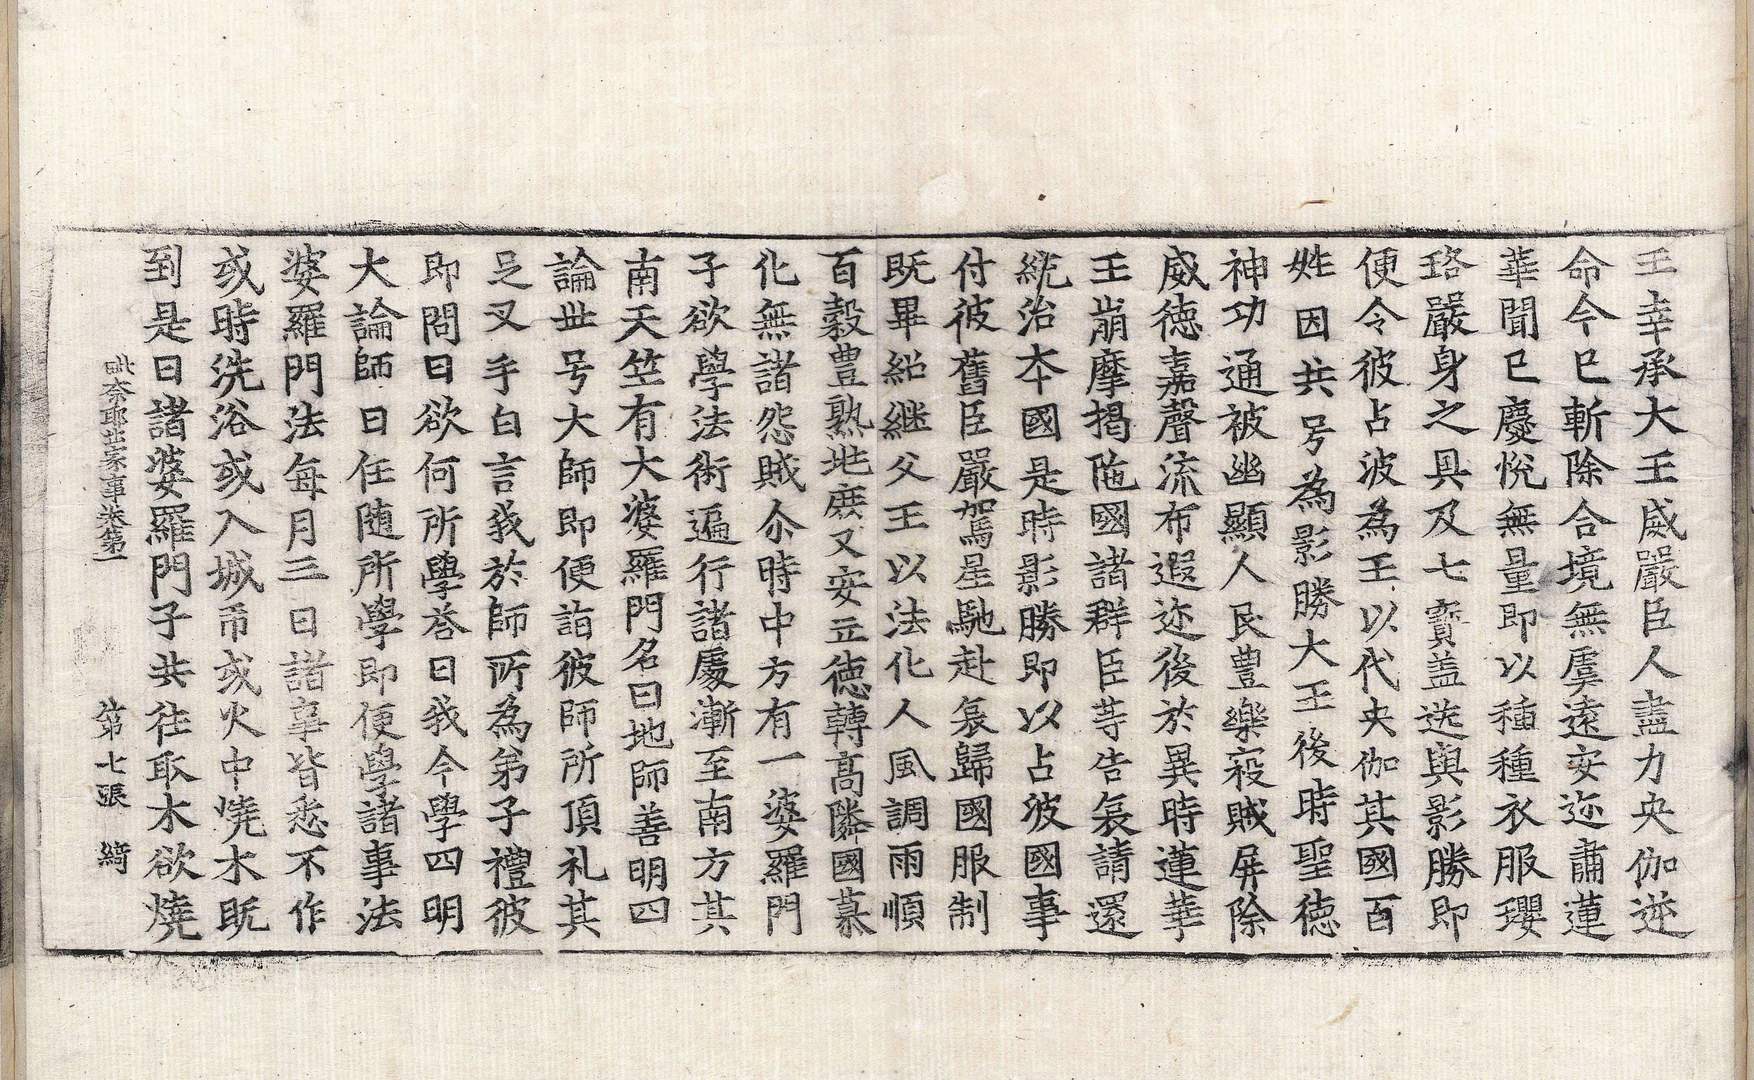 王幸承大王威嚴臣人盡力央伽逆
命今已斬除合境無虞遠安迩肅蓮
華聞已慶悅無量即以種種衣服瓔
珞嚴身之具及七寶盖送與影勝即
便令彼占波為王以代央伽其國百
姓因共号為影勝大王後時聖德
神功通被幽顯人民豊樂寇賊屏除
威德嘉聲流布遐迩後於異時蓮華
王崩摩揭陁國諸群臣等告哀請還
統治本國是時影勝即以占波國事
付彼舊臣嚴駕星馳赴哀歸國服制
既畢紹継父王以法化人風調雨順
百穀豊熟地庶又安立德轉高隣國慕
化無諸怨賊尒時中方有一婆羅門
子欲學法術遍行諸處漸至南方其
南天竺有大婆羅門名曰地師善明四
論世号大師即便詣彼師所頂礼其
足叉手白言我於師所為弟子禮彼
即問曰欲何所學荅曰我今學四明
大論師曰任隨所學即便學諸事法
婆羅門法每月三日諸事皆悉不作
或時洗浴或入城市或火中燒木既
到是日諸婆羅門子共往取木欲燒
毗奈耶出家事卷第一 第七張 綺